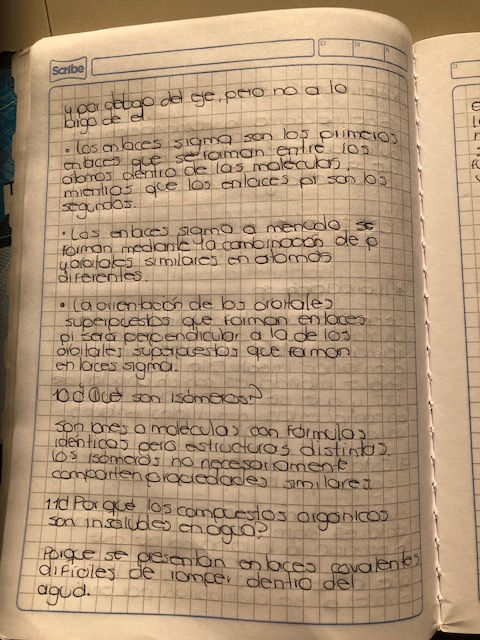 Scribe
D M A
y por debajo del eje, pero no a lo
largo de el
• Los enlaces sigma son los primeros
enlaces que se forman entre los
átomos dentro de las moléculas,
mientras que los enlaces pi son los
segundos.
• Los enlaces sigma a menudo se
forman mediante la combinación de p
y orbitales similares en atomos
diferentes.
• La orientación de los orbitales
superpuestos que forman enlaces
pi será perpendicular a la de los
orbitales superpuestos que forman
enlaces sigma.
10¿Qué son isómeros?
Son iones o moléculas con formulas
identicas pero estructuras distintas.
Los isómeros no necesariamente
comparten propiedades similares.
11¿Por qué los compuestos orgánicos
son insolubles en agua?
Porque se presentan enlaces covalentes
dificiles de romper dentro del
agua.